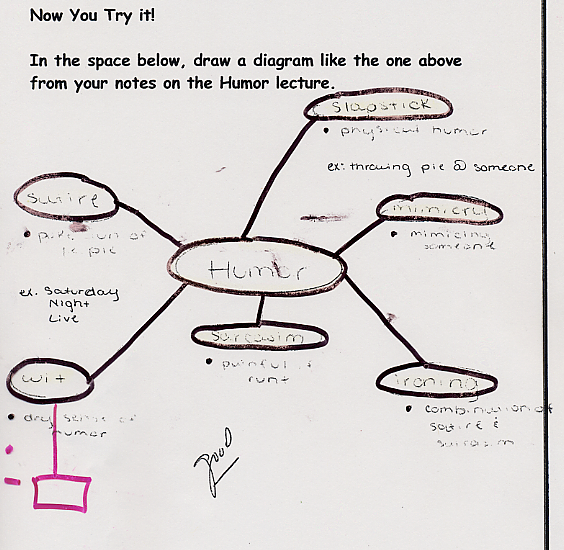 Now You Try it!
In the space below, draw a diagram like the one above
from your notes on the Humor lecture.
slapstick
• physical humor
ex: throwing pie @ someone
satire
•
ex. Saturday
Night
Live
mimicry
• mimicing
someone
Humor
sarcasim
• painful
wit
• dry sense of
humor
ironing
• combination of
satire &
sarcasim
good